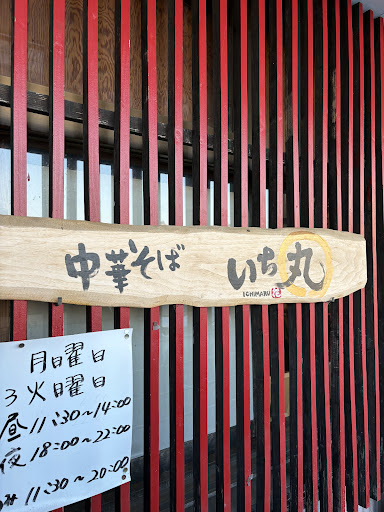 中華そば いち丸
ICHIMARU
月曜日
3火曜日
昼 11:30~14:00
夜 18:00~22:00
11:30~20:00